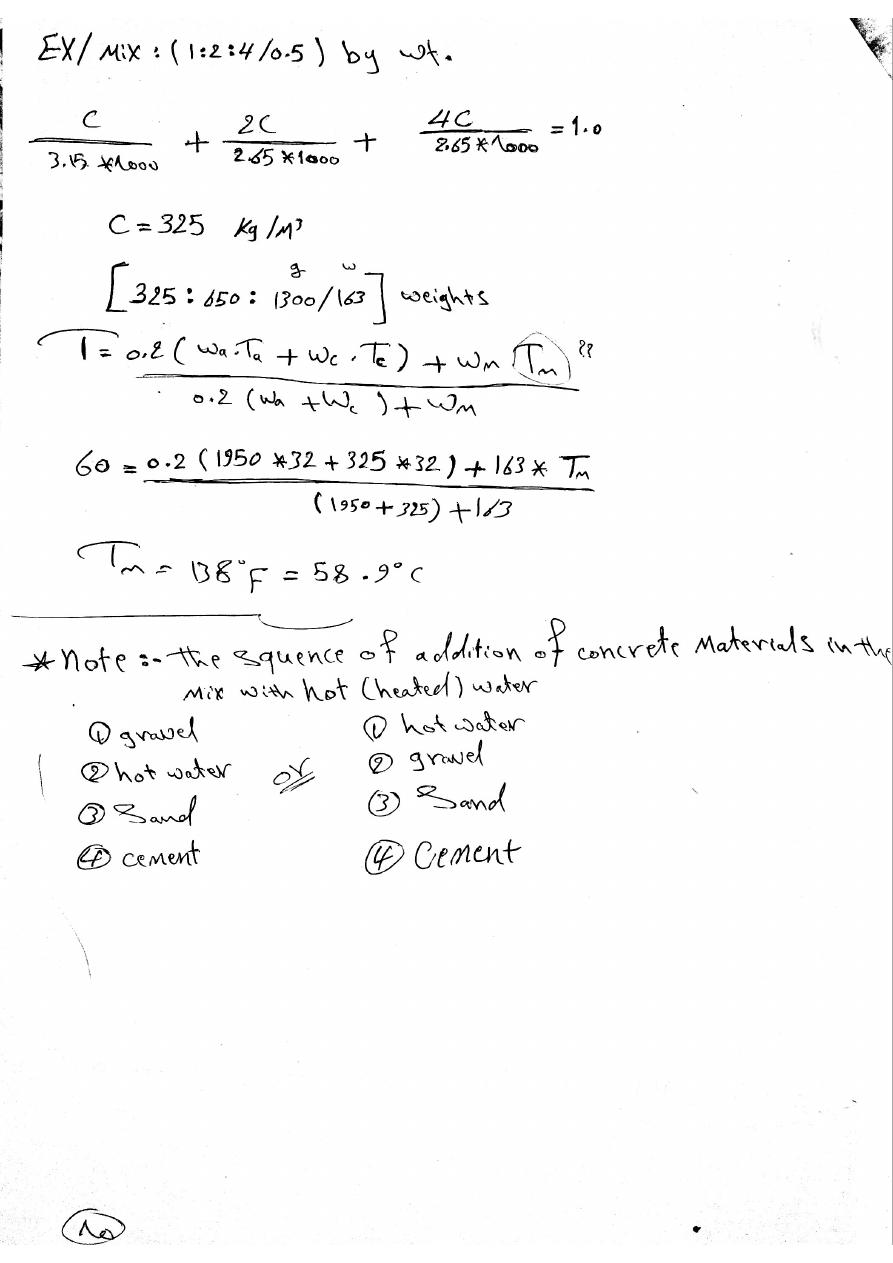 EX/ Mix : (1:2:4/0.5) by wt.
C/(3.15*1000) + 2C/(2.65*1000) + 4C/(2.65*1000) = 1.0
C = 325 Kg/M³
g w
[325 : 650 : 1300/163] weights
T = (0.2 (Wa.Ta + Wc.Tc) + Wm Tm)/(0.2 (Wa + Wc) + Wm) ??
60 = (0.2 (1950 *32 + 325 *32) + 163 * Tm)/((1950 + 325) + 163)
Tm = 138°F = 58.9°C
* Note :- the squence of addition of concrete Materials in the
Mix with hot (heated) water
① gravel ① hot water
② hot water or ② gravel
③ Sand ③ Sand
④ cement ④ Cement